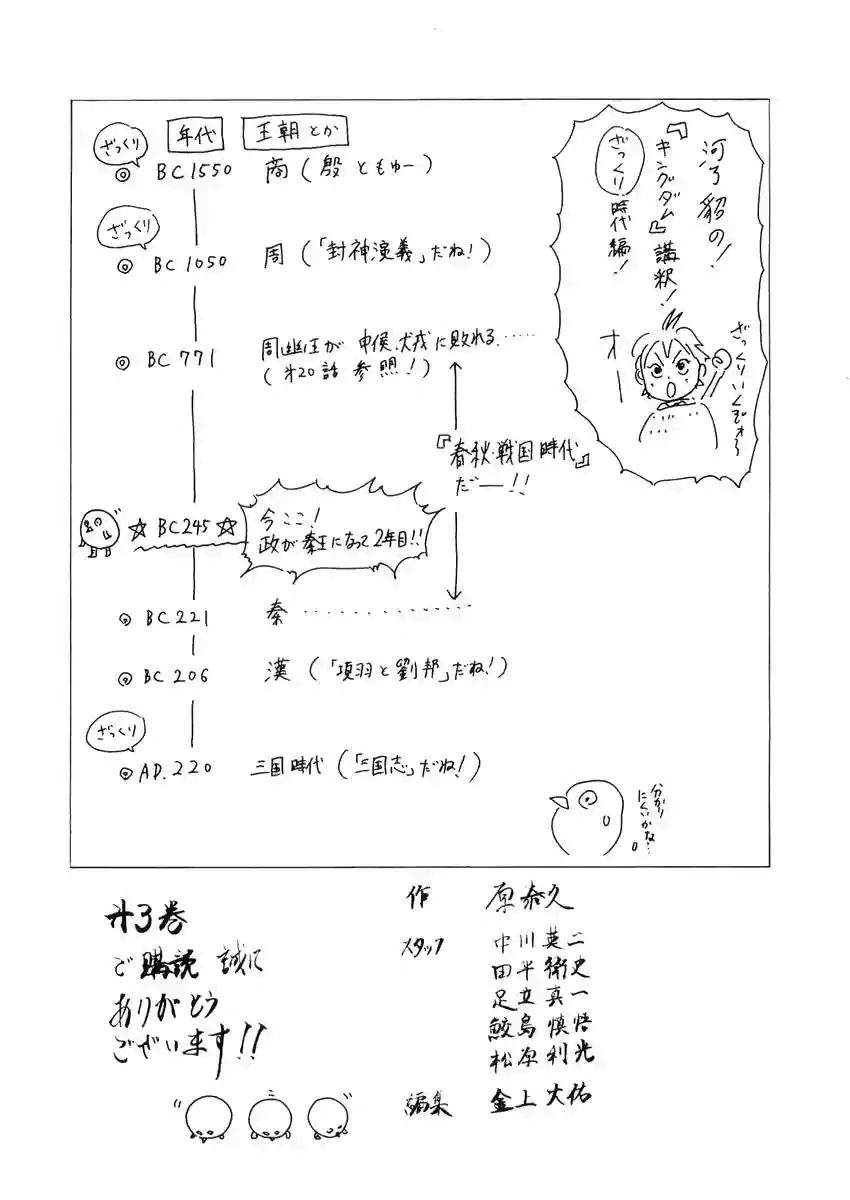 河了貂の!
『キングダム』講釈!
ざっくり時代編!
ざっくりいくぜオ〜
オー
年代 王朝とか
ざっくり
BC1550 商(殷ともゆー)
ざっくり
BC1050 周(「封神演義」だね!)
BC771 周幽王が申侯、犬戎に敗れる……
(第20話参照!)
『春秋・戦国時代』
だー!!
☆BC245☆ 今ここ!
政が秦王になって2年目!!
BC221 秦…………
BC206 漢(「項羽と劉邦」だね!)
ざっくり
AD.220 三国時代(「三国志」だね!)
分かり
にくいかな…
第3巻
ご購読 誠に
ありがとう
ございます!!
作 原泰久
スタッフ 中川英二
田平衛史
足立真一
鮫島慎悟
松原利光
編集 金上大佑